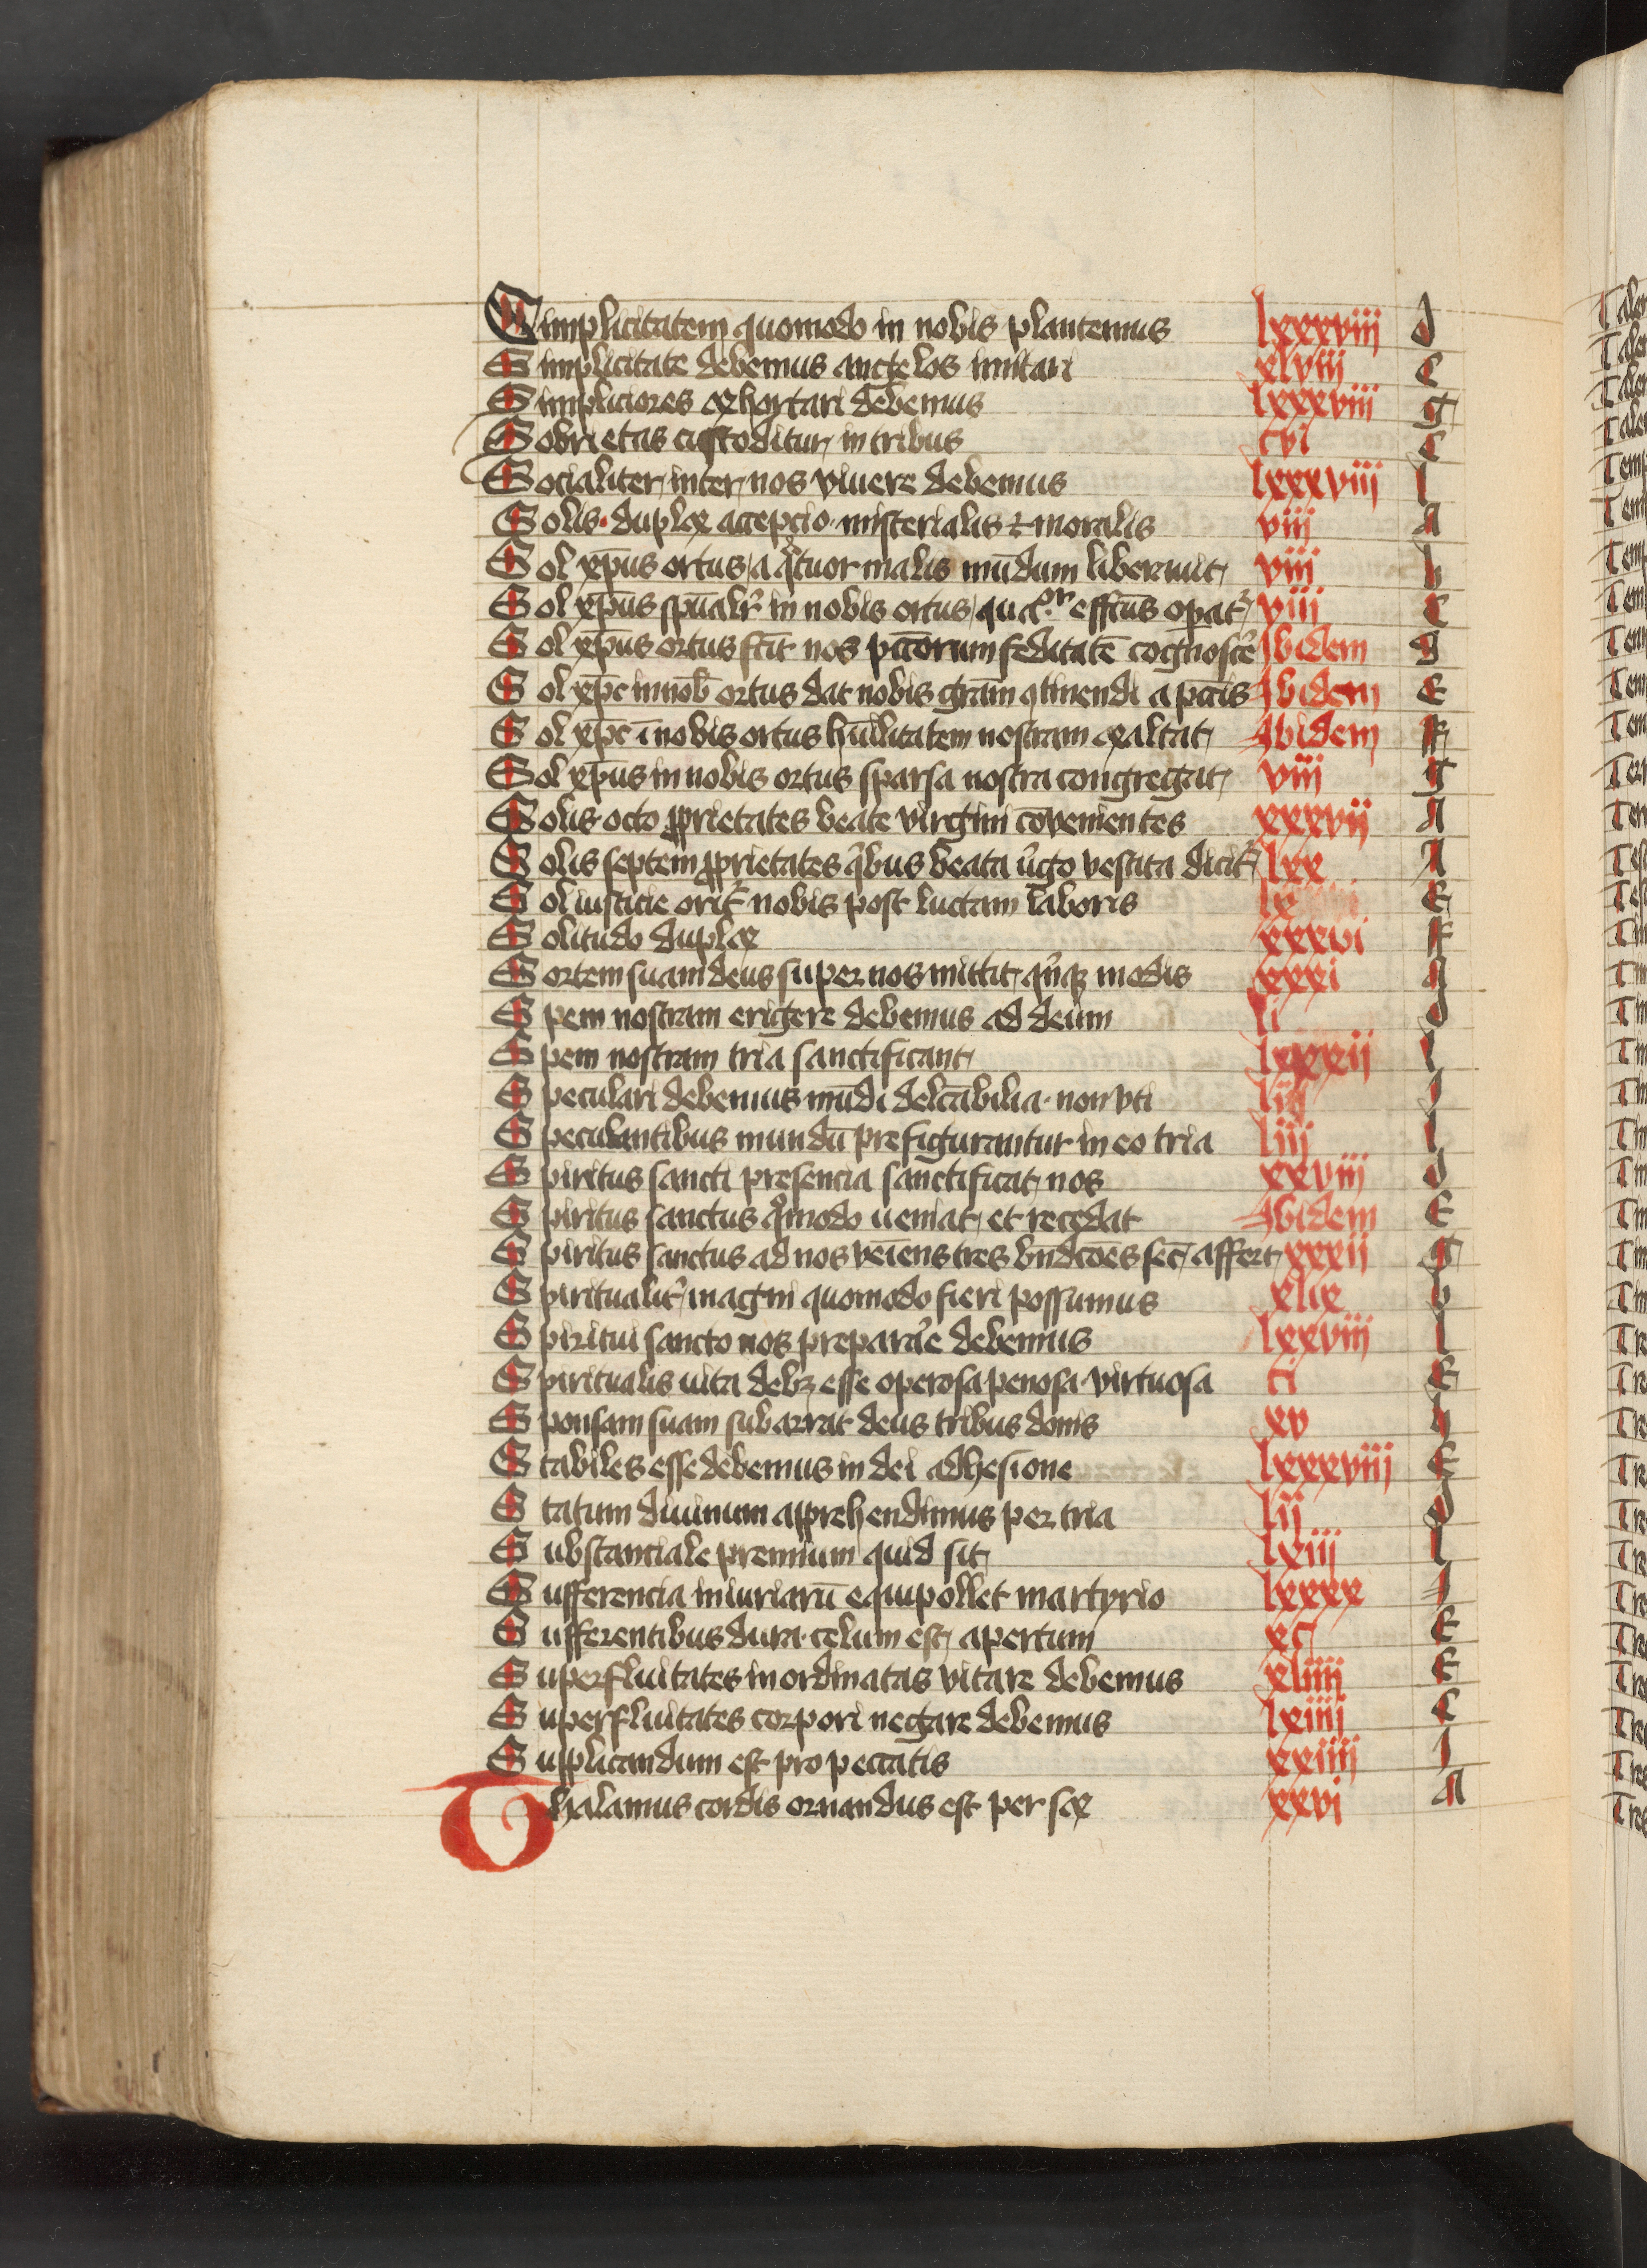 Simplicitatem quomodo in nobis plantemus lxxxviii d
Simplicitate debemus angelos imitari xlviij c
Simpliciores exhortari debemus lxxxviii g
Sobrietas custoditur in tribus cvi c
Socialiter inter nos viuere debemus lxxxviij l
Solis duplex accepcio misterialis et moralis viij A
Sol xp̄us ortus a qͣtuor malis mūdum liberauit viij b
Sol xp̄us sp̄ualiť in nobis ortus effc̄us opat᷑ viij c
Sol xp̄us ortus fac̄it nos pc̄torum feditatē cognosce᷑ Ibidem d
Sol xp̄c in nob̄ ortus dat nobis grām ꝯtinendi a pc̄tis Ibidem E
Sol xp̄c ī nobis ortus hūilitatem nostram exaltat Ibidem F
Sol xp̄us in nobis ortus sparsa nostra congregat viij g
Solis octo ꝓprietates beate virgini cōuenientes xxxvij A
Solis septem ꝓprietates qͥbus beata ûgo vestita dicit᷑ lxx A
Sol iusticie orit᷑ nobis post luctam laboris lx E
Solitudo duplex xxxvi F
Sortem suam deus super nos mittit qͥnqꝫ modis xxxi A
Spem nostram erigere debemus ad deum li d
Spem nostram tria sanctificant lxxxij l
Speculari debemus mūdi delc̄abilia non vti liij I
Speculantibus mundū prefigurantur in eo tria liij l
Spiritus sancti presencia sanctificat nos xxviij d
Spiritus sanctus qͦmodo ueniat et recedat Ibidem E
Spiritus sanctus ad nos veīens tres bn̄dc̄ōes sec̄ affert xxxij g
Spiritualit᷑ magni quomodo fieri possumus xlix b
Spiritui sancto nos prepara᷑e debemus lxxviij l
Spiritualis uita debꝫ esse operosa penosa virtuosa ci E
Sponsam suam subarrat deus tribus donis xv h
Stabiles esse debemus in dei adhesione lxxxviij E
Statum diuinum apprehendimus per tria lij d
Substanciale premium quid sit lxiij l
Sufferencia iniuriarū equipollet martyrio lxxxx I
Sufferentibus dura celum est apertum xc E
Superfluitates inordinatas vitare debemus xliiij E
Superfluitates corpori negare debemus lxiiij c
Supplicandum est pro peccatis xxiiij I
Thalamus cordis ornandus est per sex xxvi A